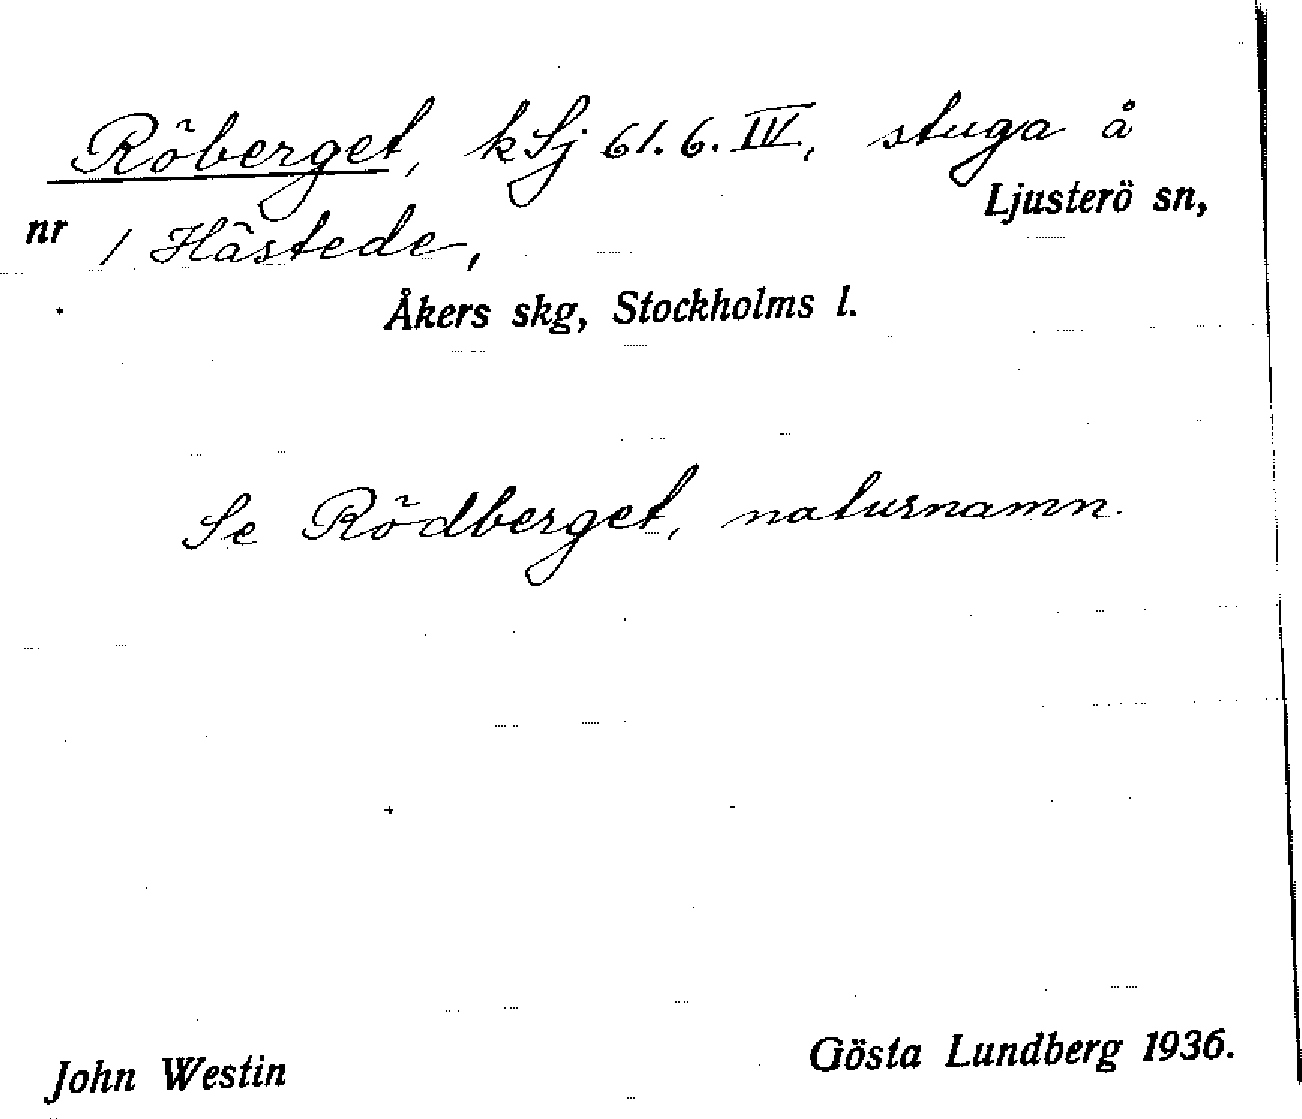 Röberget, kSj 61.6.IV, stuga å
Ljusterö sn,
nr 1 Hästede,
Åkers skg, Stockholms l.
Se Rödberget, naturnamn.
John Westin
Gösta Lundberg 1936.